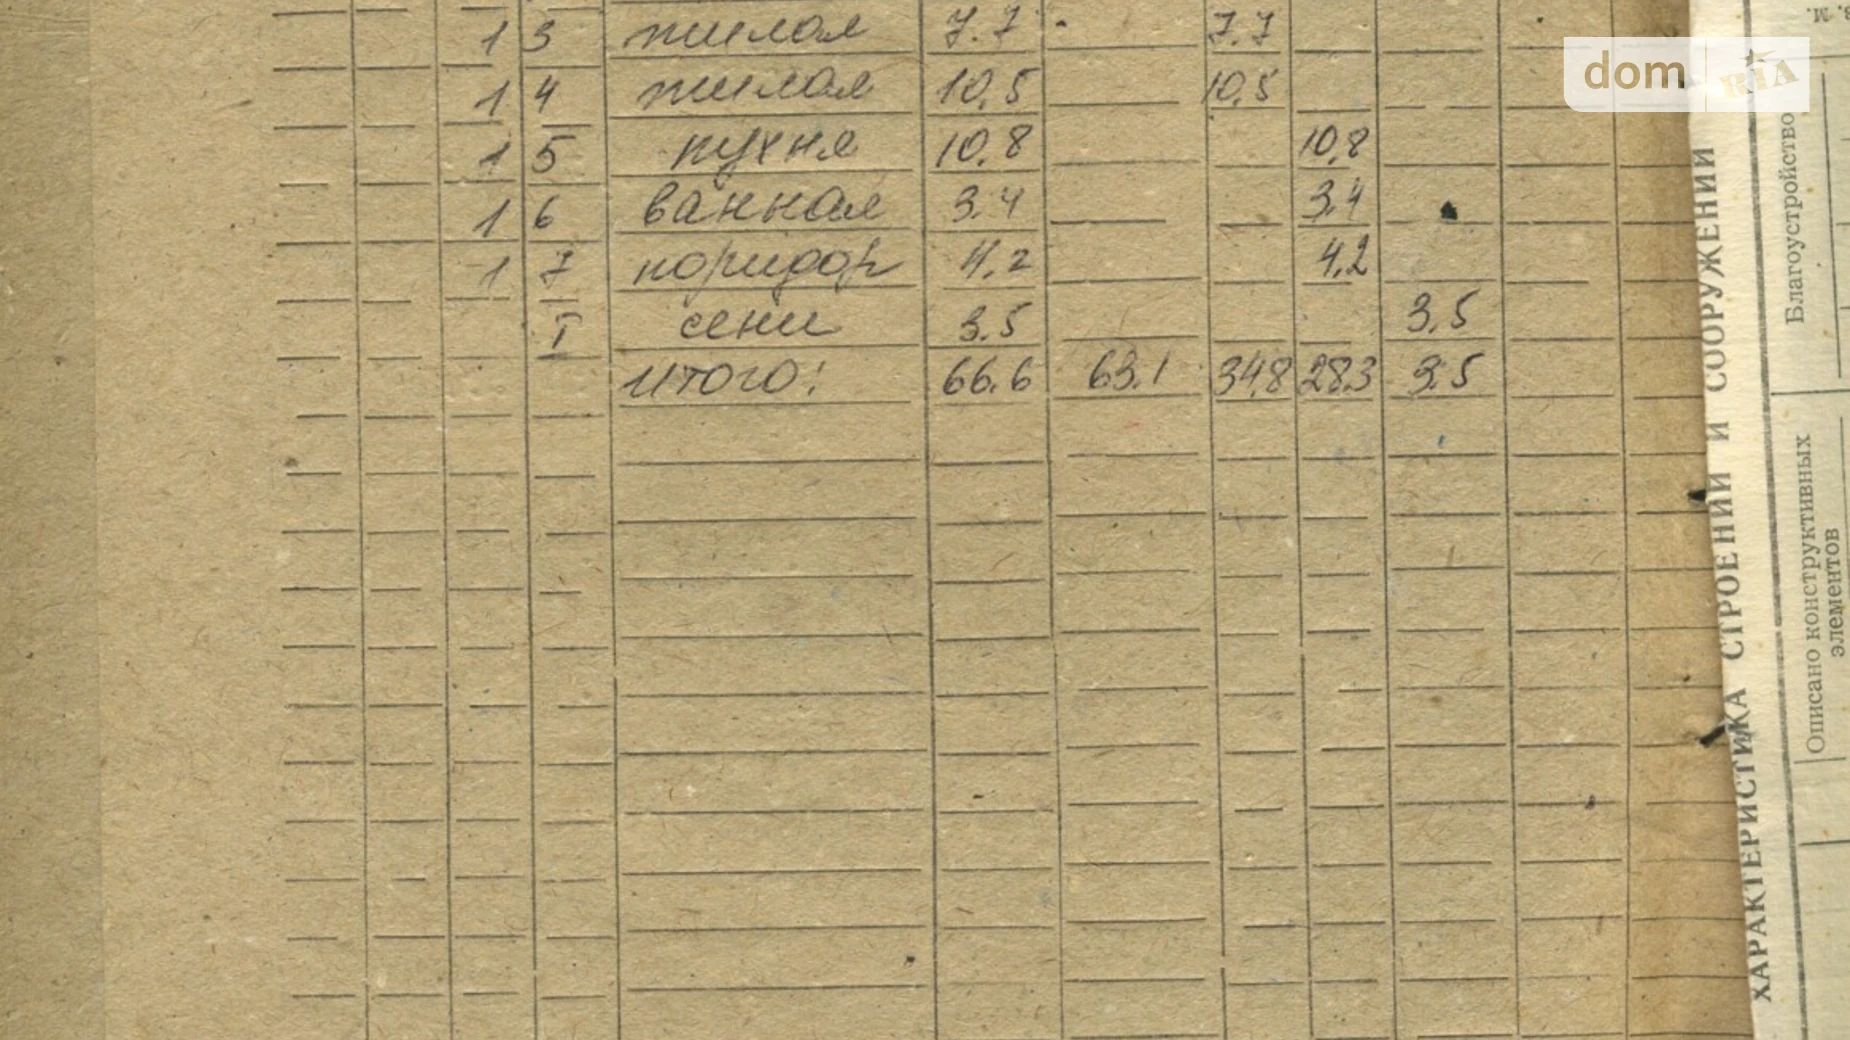 1 3 жилая 7.7 7.7
1 4 жилая 10,5 10,5
1 5 кухня 10,8 10,8
1 6 ванная 3.4 3.4
1 7 коридор 4,2 4,2
I сени 3.5 3,5
итого: 66.6 63.1 34,8 28.3 3.5
dom RIA
ХАРАКТЕРИСТИКА СТРОЕНИЙ И СООРУЖЕНИЙ
Благоустройство
Описано конструктивных
элементов